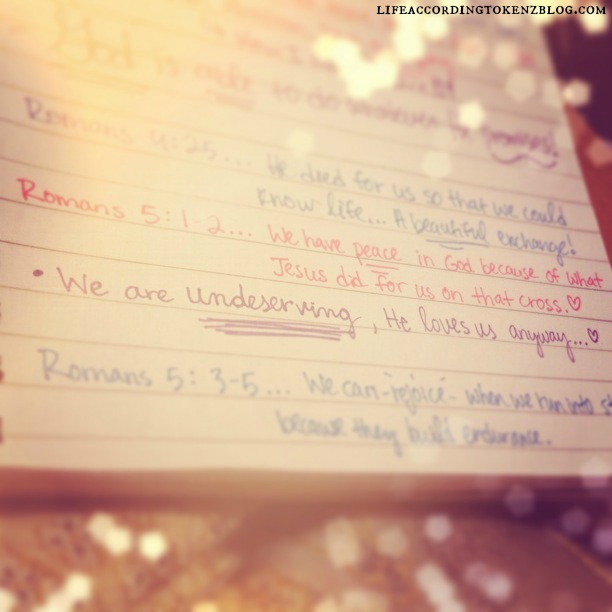 LIFEACCORDINGTOKENZBLOG.COM
God is able to do
Romans 4:25... He died for us so that we could
know life... A beautiful exchange!
Romans 5:1-2... We have peace in God because of what
Jesus did for us on that cross.♡
• We are undeserving, He loves us anyway...♡
Romans 5: 3-5... We can -rejoice- when we run into
because they build endurance.